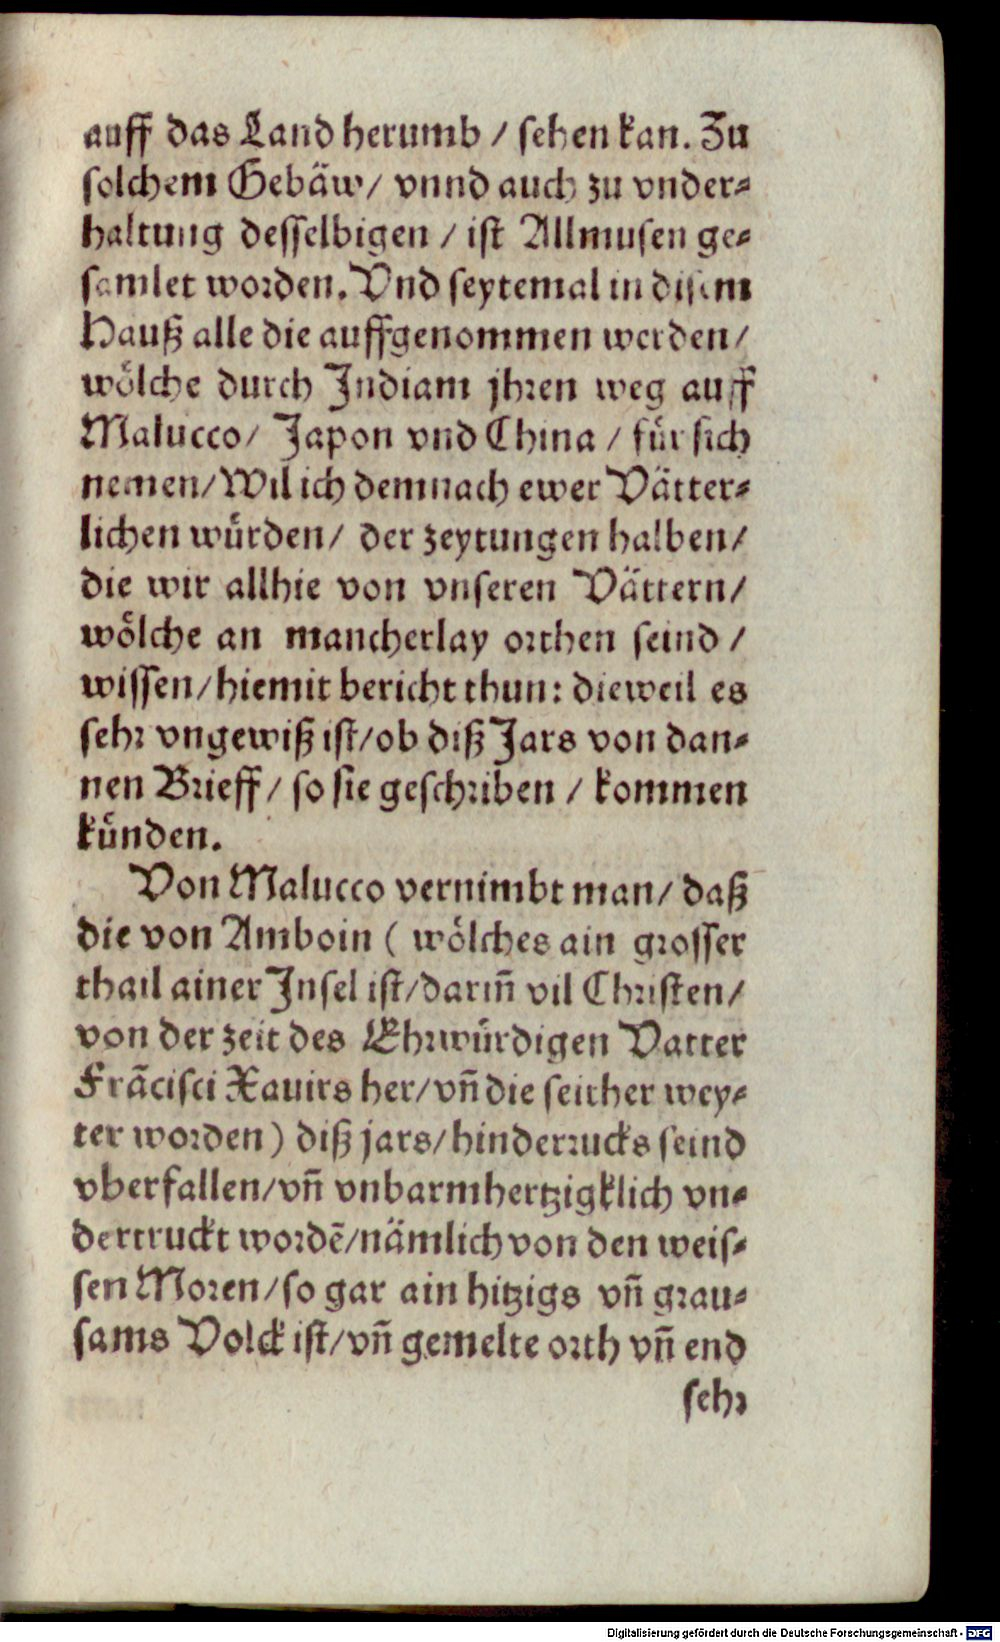 auff das Land herumb / sehen kan. Zu
solchem Gebäw / vnnd auch zu vnder-
haltung desselbigen / ist Allmusen ge-
samlet worden. Vnd seytemal in disem
Hauß alle die auffgenommen werden /
wölche durch Indiam jhren weg auff
Malucco / Japon vnd China / für sich
nemen / Wil ich demnach ewer Vätter-
lichen würden / der zeytungen halben /
die wir allhie von vnseren Vättern /
wölche an mancherlay orthen seind /
wissen / hiemit bericht thun: dieweil es
sehr vngewiß ist / ob diß Jars von dan-
nen Brieff / so sie geschriben / kommen
künden.
Von Malucco vernimbt man / daß
die von Amboin ( wölches ain grosser
thail ainer Insel ist / darin̄ vil Christen /
von der zeit des Ehrwürdigen Vatter
Frācisci Xauirs her / vn̄ die seither wey-
ter worden ) diß jars / hinderrucks seind
vberfallen / vn̄ vnbarmhertzigklich vn-
dertruckt wordē / nämlich von den weis-
sen Moren / so gar ain hitzigs vn̄ grau-
sams Volck ist / vn̄ gemelte orth vn̄ end
sehr
Digitalisierung gefördert durch die Deutsche Forschungsgemeinschaft - DFG